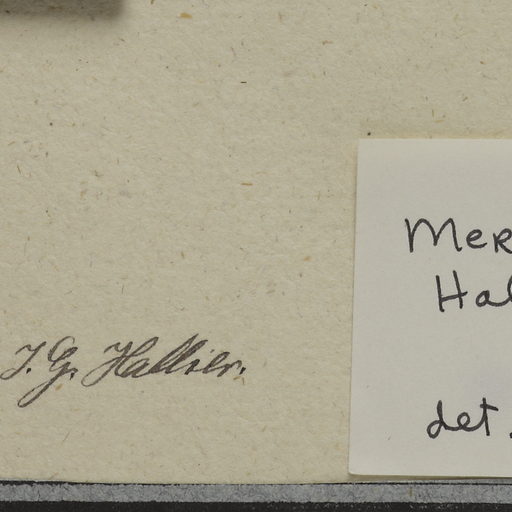 J. G. Hallier.
Mer
Hal
det.